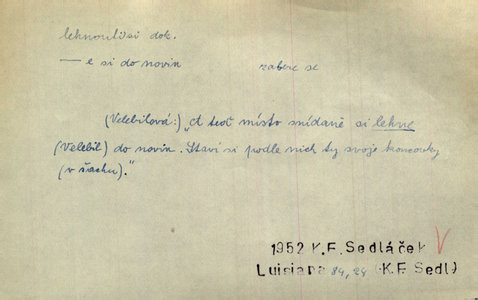 lehnouti si dok.
— e si do novin zabere se
(Velebilová:) „A teď místo snídaně si lehne
(Velebil) do novin. Staví si podle nich ty svoje koncovky
(v šachu)."
1952 K.F. Sedláček
Luisiana 84, 24 (K.F. Sedl.)